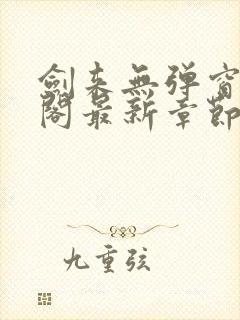 劍来無弹窗
閣最新章節
九重弦